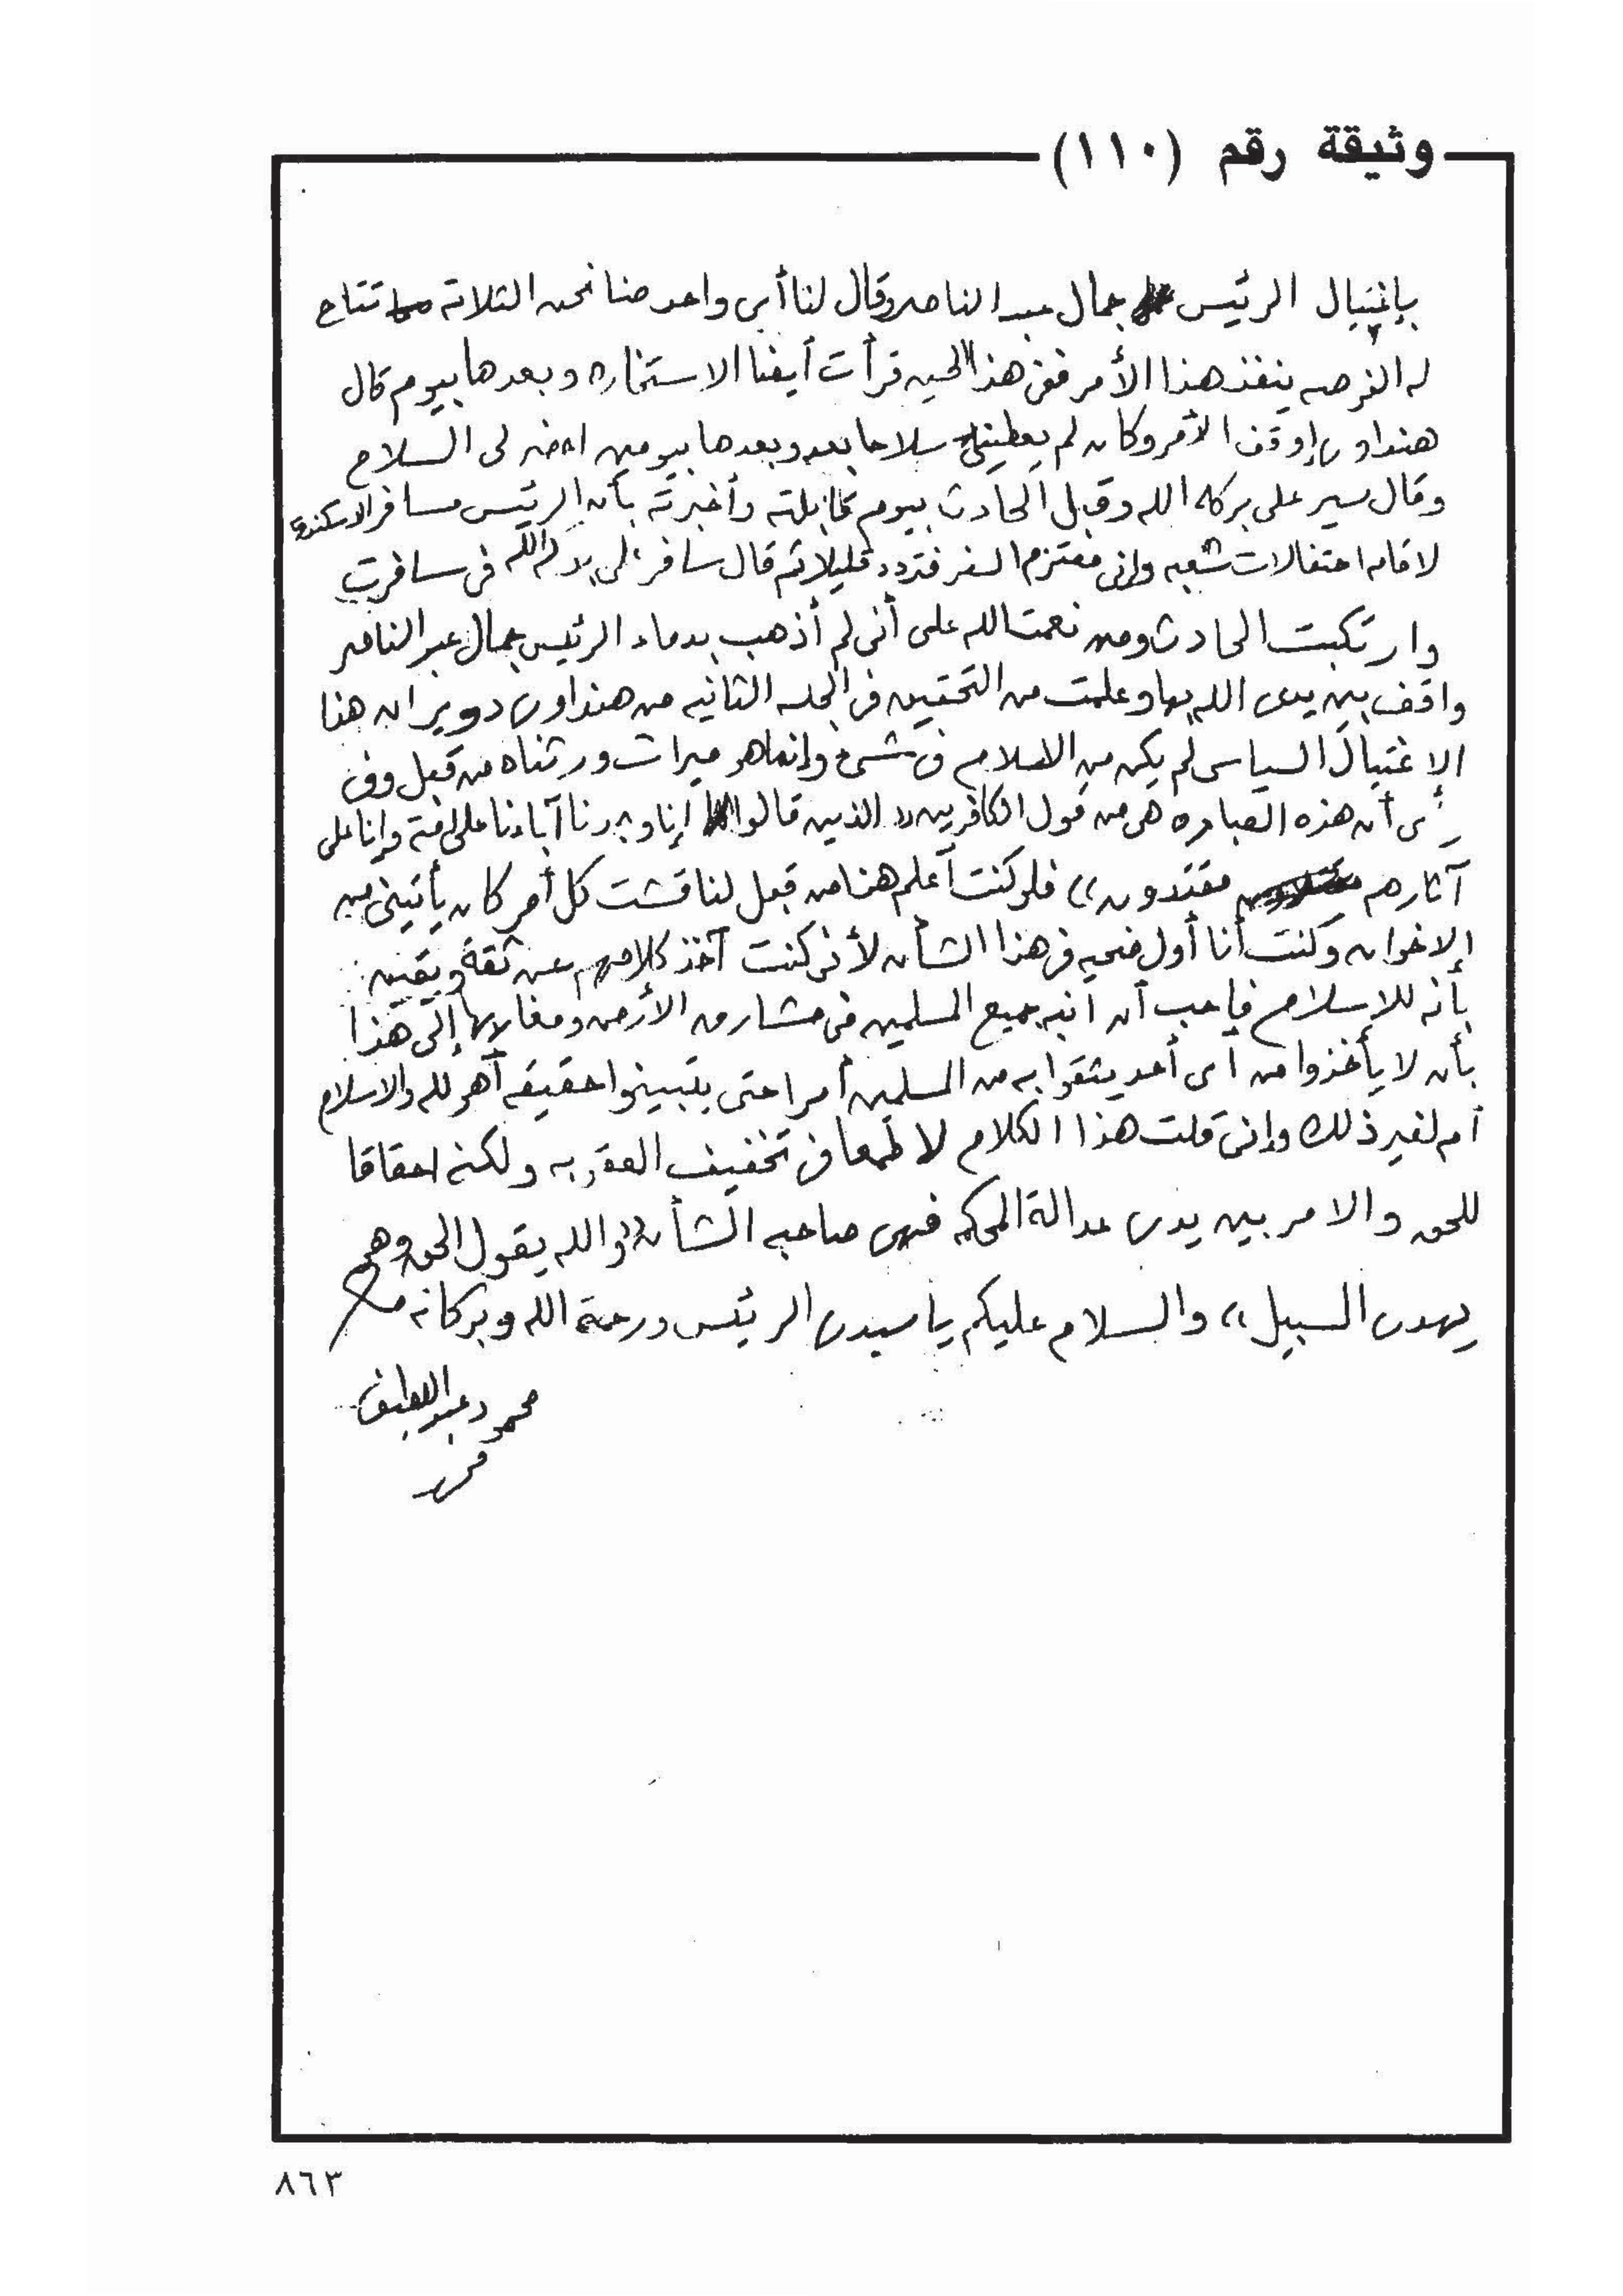 وثيقة رقم (١١٠)
بإغتيال الرئيس جمال عبد الناصر وقال لنا أى واحد منا نحن الثلاثة تتاح
له الفرصه ينفذ هذا الأمر ففى هذا الحين قرأت أيضا الاستخاره وبعدها بيوم قال
هنداوى إوقف الأمر وكان لم يعطينى سلاحا بعد وبعدها بيومين احضر لى السلاح
وقال سير على بركة الله وقبل الحادث بيوم قابلته وأخبرته بأن الرئيس مسافر الاسكندرية
لاقامه احتفالات شعبه وإنى معتزم السفر فتردد قليلا ثم قال سافر على بركة الله فى سافرت
وارتكبت الحادث ومن نعمت الله على أنى لم أذهب بدماء الرئيس جمال عبد الناصر
واقف بين يدى الله بها وعلمت من التحقيق فى الجلسه الثانيه من هنداوى دوير ان هذا
الإغتيال السياسى لم يكن من الاسلام فى شىء وإنما هو ميراث ورثناه من قبل وفى
رأى أن هذه العباره هى من قول الكافرين « الذين قالوا إنا وجدنا آباءنا على أمة وإنا على
آثارهم مقتدون » فلو كنت أعلم هذا من قبل لناقشت كل أمر كان يأتينى من
الاخوان وكنت أنا أول ضحيه فى هذا الشأن لأنى كنت آخذ كلامهم عن ثقة ويقين
بأنه للاسلام فإحب أن انبه جميع المسلمين فى مشارق الأرض ومغاربها إلى هذا
بأن لا يأخذوا من اى أحد يثقوا به من المسلمين أمرا حتى يتبينوا حقيقه أهو لله والاسلام
أم لغير ذلك وإنى قلت هذا الكلام لا طمعا فى تخفيف العقوبه ولكنه احقاقا
للحق والامر بين يدى عدالة المحكمه فهى صاحبه الشأن « والله يقول الحق وهو
يهدى السبيل » والسلام عليكم يا سيدى الرئيس ورحمة الله وبركاته
محمود عبد اللطيف
محمد
٨٦٣